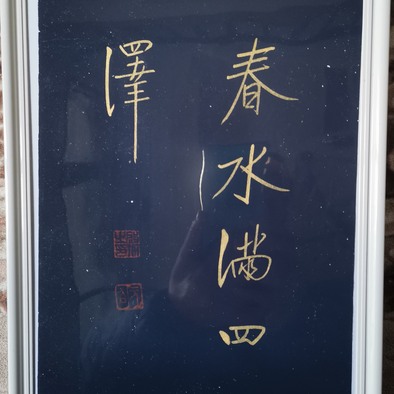 春水滿四
澤